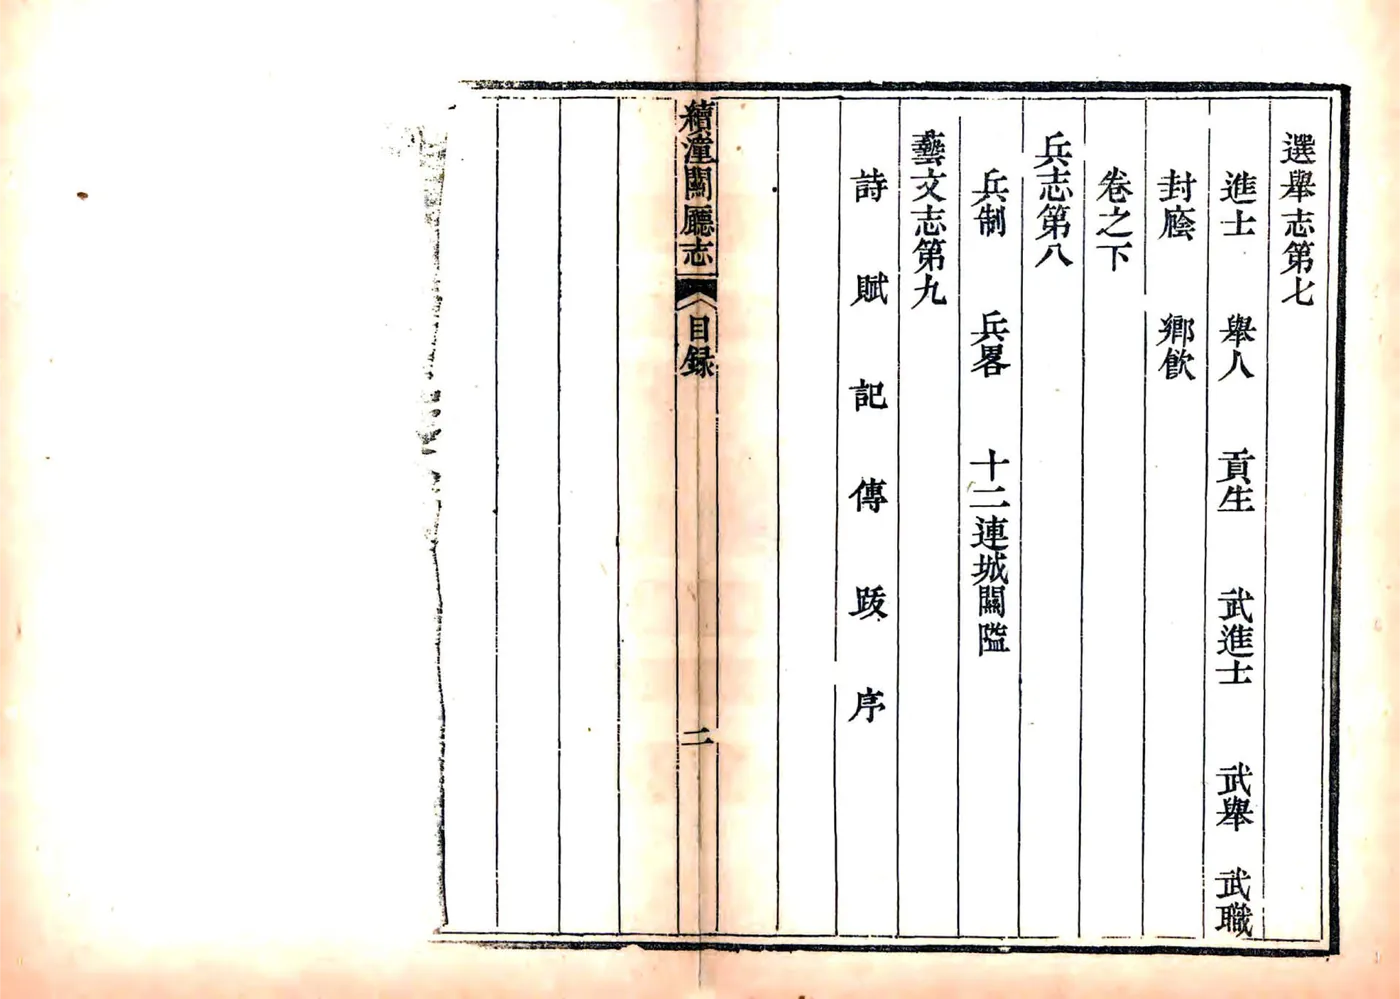 選舉志第七
進士　舉人　貢生　武進士　武舉　武職
封廕　鄉飲
卷之下
兵志第八
兵制　兵畧　十二連城關隘
藝文志第九
詩　賦　記　傳　跋　序
續潼關廳志　目録　二